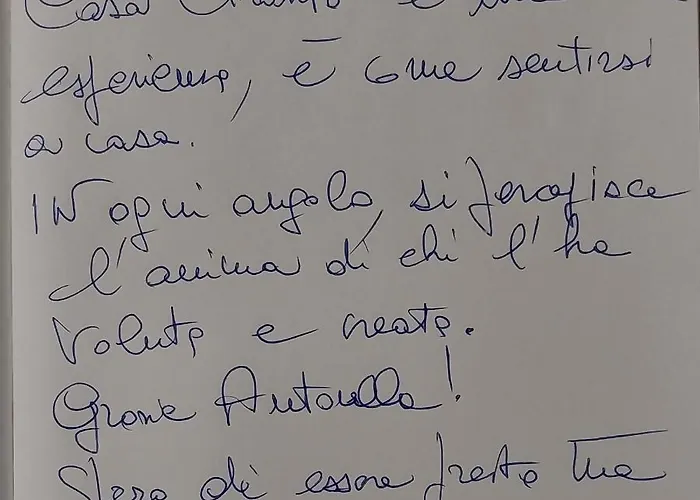 Casa è una
esperienza, è come sentirsi
a casa.
IN ogni angolo, si percepisce
l'anima di chi l'ha
voluta e creata.
Grazie Antonella!
Spero di essere presto tua